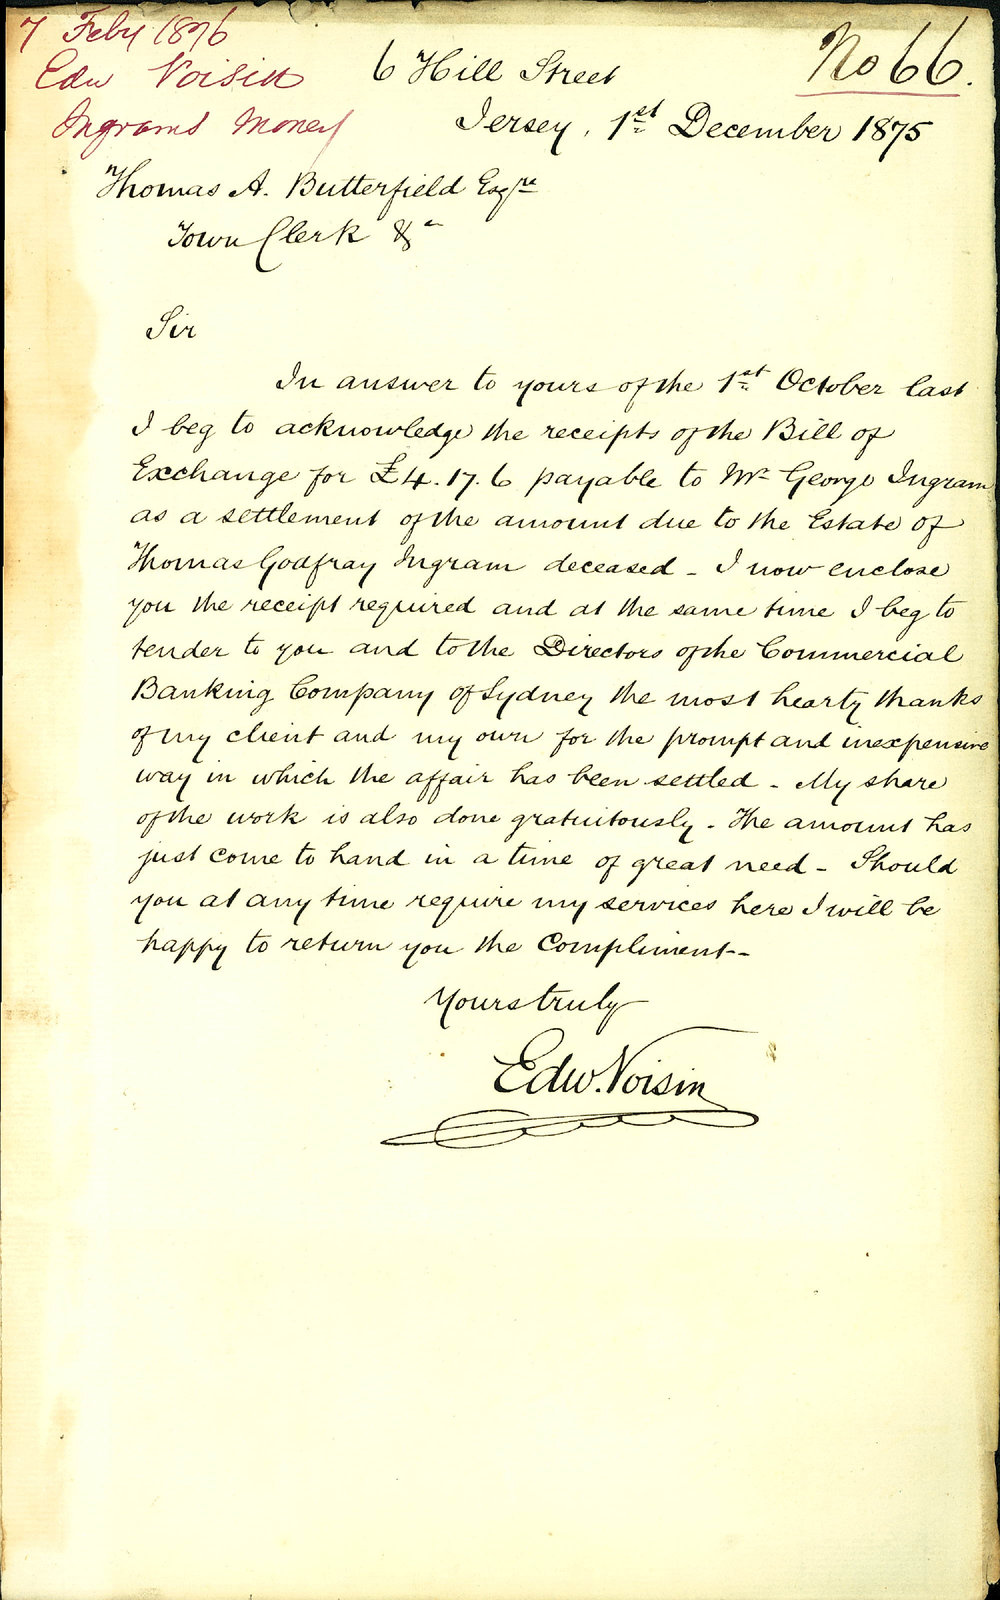 7 Feby 1876
Edw Voisin
Ingrams Money
No 66.
6 Hill Street
Jersey, 1st December 1875
Thomas A. Butterfield Esqre
Town Clerk &c
Sir
In answer to yours of the 1st October last
I beg to acknowledge the receipts of the Bill of
Exchange for £4.17.6 payable to Mr George Ingram
as a settlement of the amount due to the Estate of
Thomas Godfray Ingram deceased - I now enclose
you the receipt required and at the same time I beg to
tender to you and to the Directors of the Commercial
Banking Company of Sydney the most hearty thanks
of my client and my own for the prompt and inexpensive
way in which the affair has been settled - My share
of the work is also done gratuitously - The amount has
just come to hand in a time of great need - Should
you at any time require my services here I will be
happy to return you the Compliment -
Yours truly
Edw. Voisin